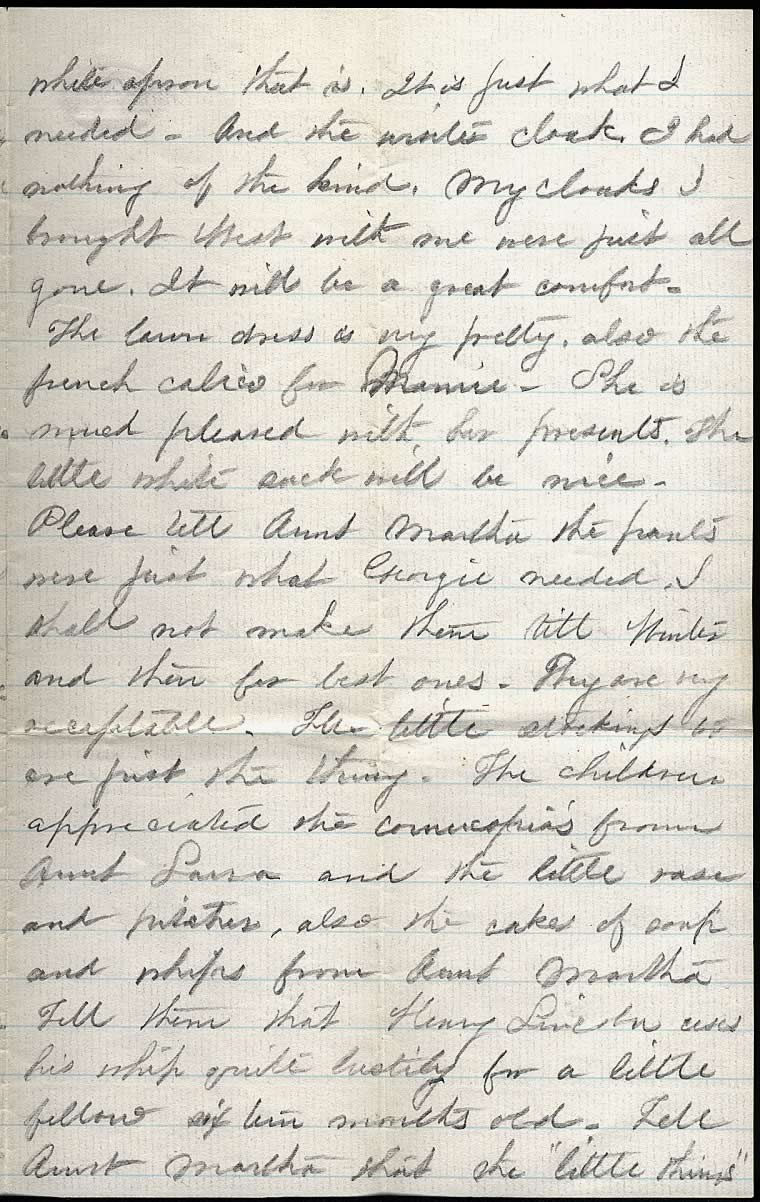 white apron that is. It is just what I
needed - And the winter cloak. I had
nothing of the kind. My cloaks I
brought West with me were just all
gone. It will be a great comfort -
The lawn dress is very pretty, also the
french calico for Mamie - She is
much pleased with her presents. The
little white sack will be nice -
Please tell Aunt Martha the pants
were just what Georgie needed. I
shall not make them till Winter
and then for best ones - They are very
acceptable. The little stockings to
are just the thing. The children
appreciated the cornucopias from
Aunt Laura and the little vase
and pitcher, also the cakes of soap
and whips from Aunt Martha
Tell them that Henry Lincoln uses
his whip quite lustily for a little
fellow sixteen months old - Tell
Aunt Martha that the "little things"